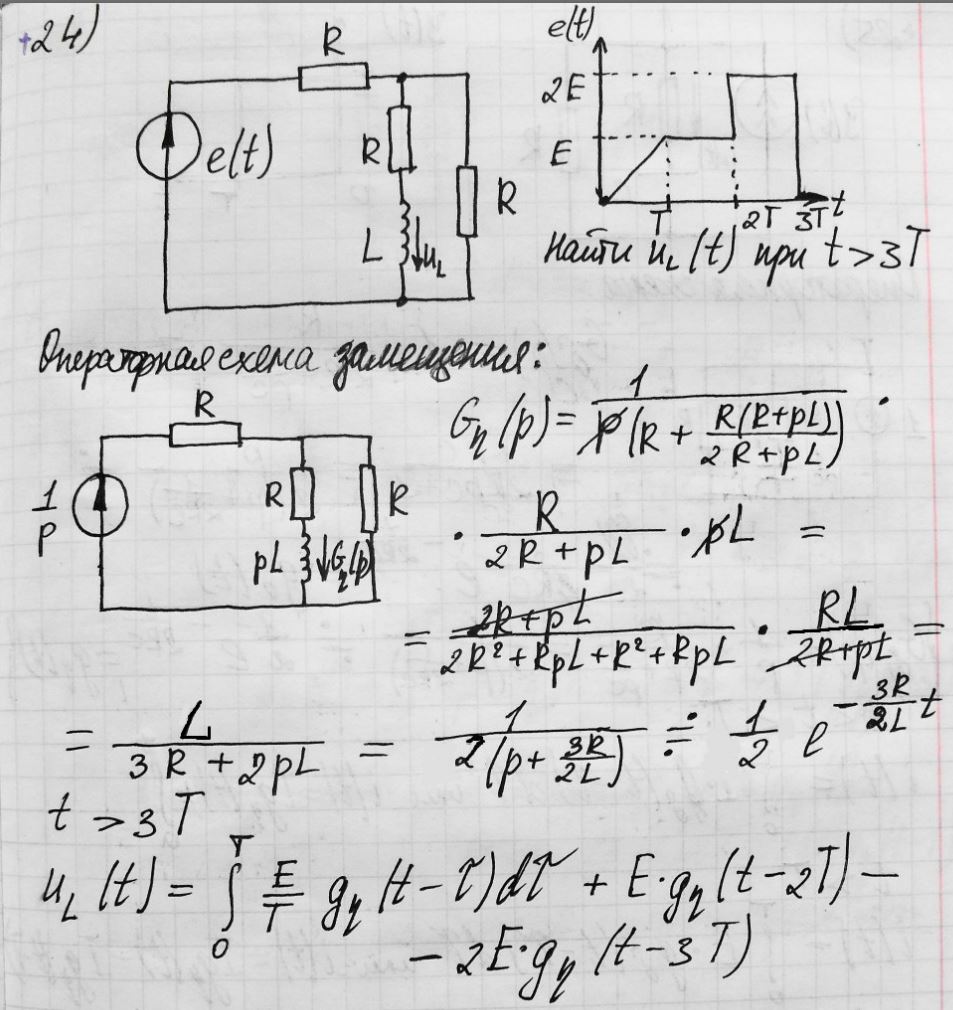 +24)
R
e(t)
R
L
u_L
R
e(t)
2E
E
T 2T 3T t
Найти u_L(t) при t>3T
Операторная схема замещения:
R
1/p
R
R
pL
G_η(p)
G_η(p) = 1/(p(R + R(R+pL)/(2R+pL))) ·
· R/(2R+pL) · pL =
= (2R+pL)/(2R²+RpL+R²+RpL) · RL/(2R+pL) =
= L/(3R+2pL) = 1/(2(p+3R/2L)) ≓ 1/2 e^(-3R/2L t)
t > 3T
u_L(t) = ∫₀ᵀ E/T g_η(t-τ)dτ + E·g_η(t-2T) –
– 2E·g_η(t-3T)